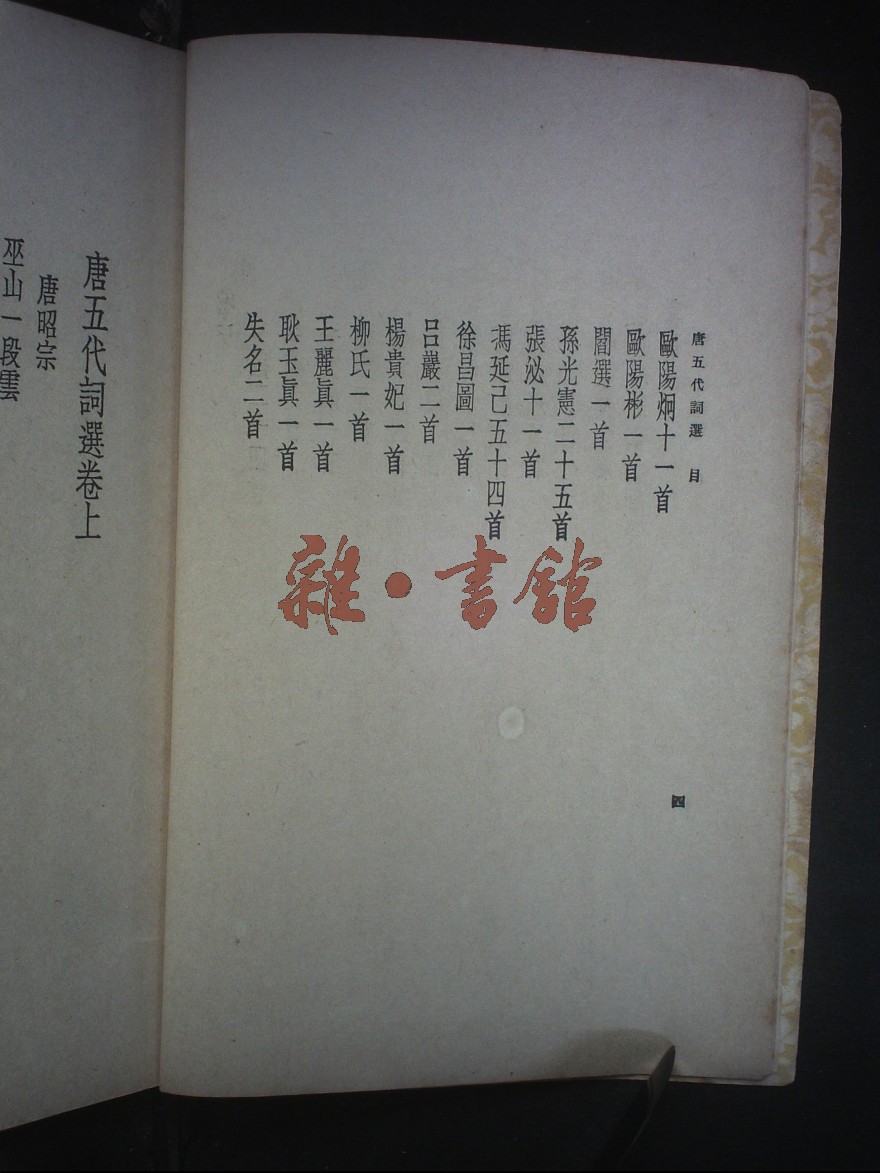 唐五代詞選 目
歐陽炯十一首
歐陽彬一首
閻選一首
孫光憲二十五首
張泌十一首
馮延己五十四首
徐昌圖一首
呂巖二首
楊貴妃一首
柳氏一首
王麗真一首
耿玉真一首
失名二首
四
雜·書館
唐五代詞選卷上
唐昭宗
巫山一段雲